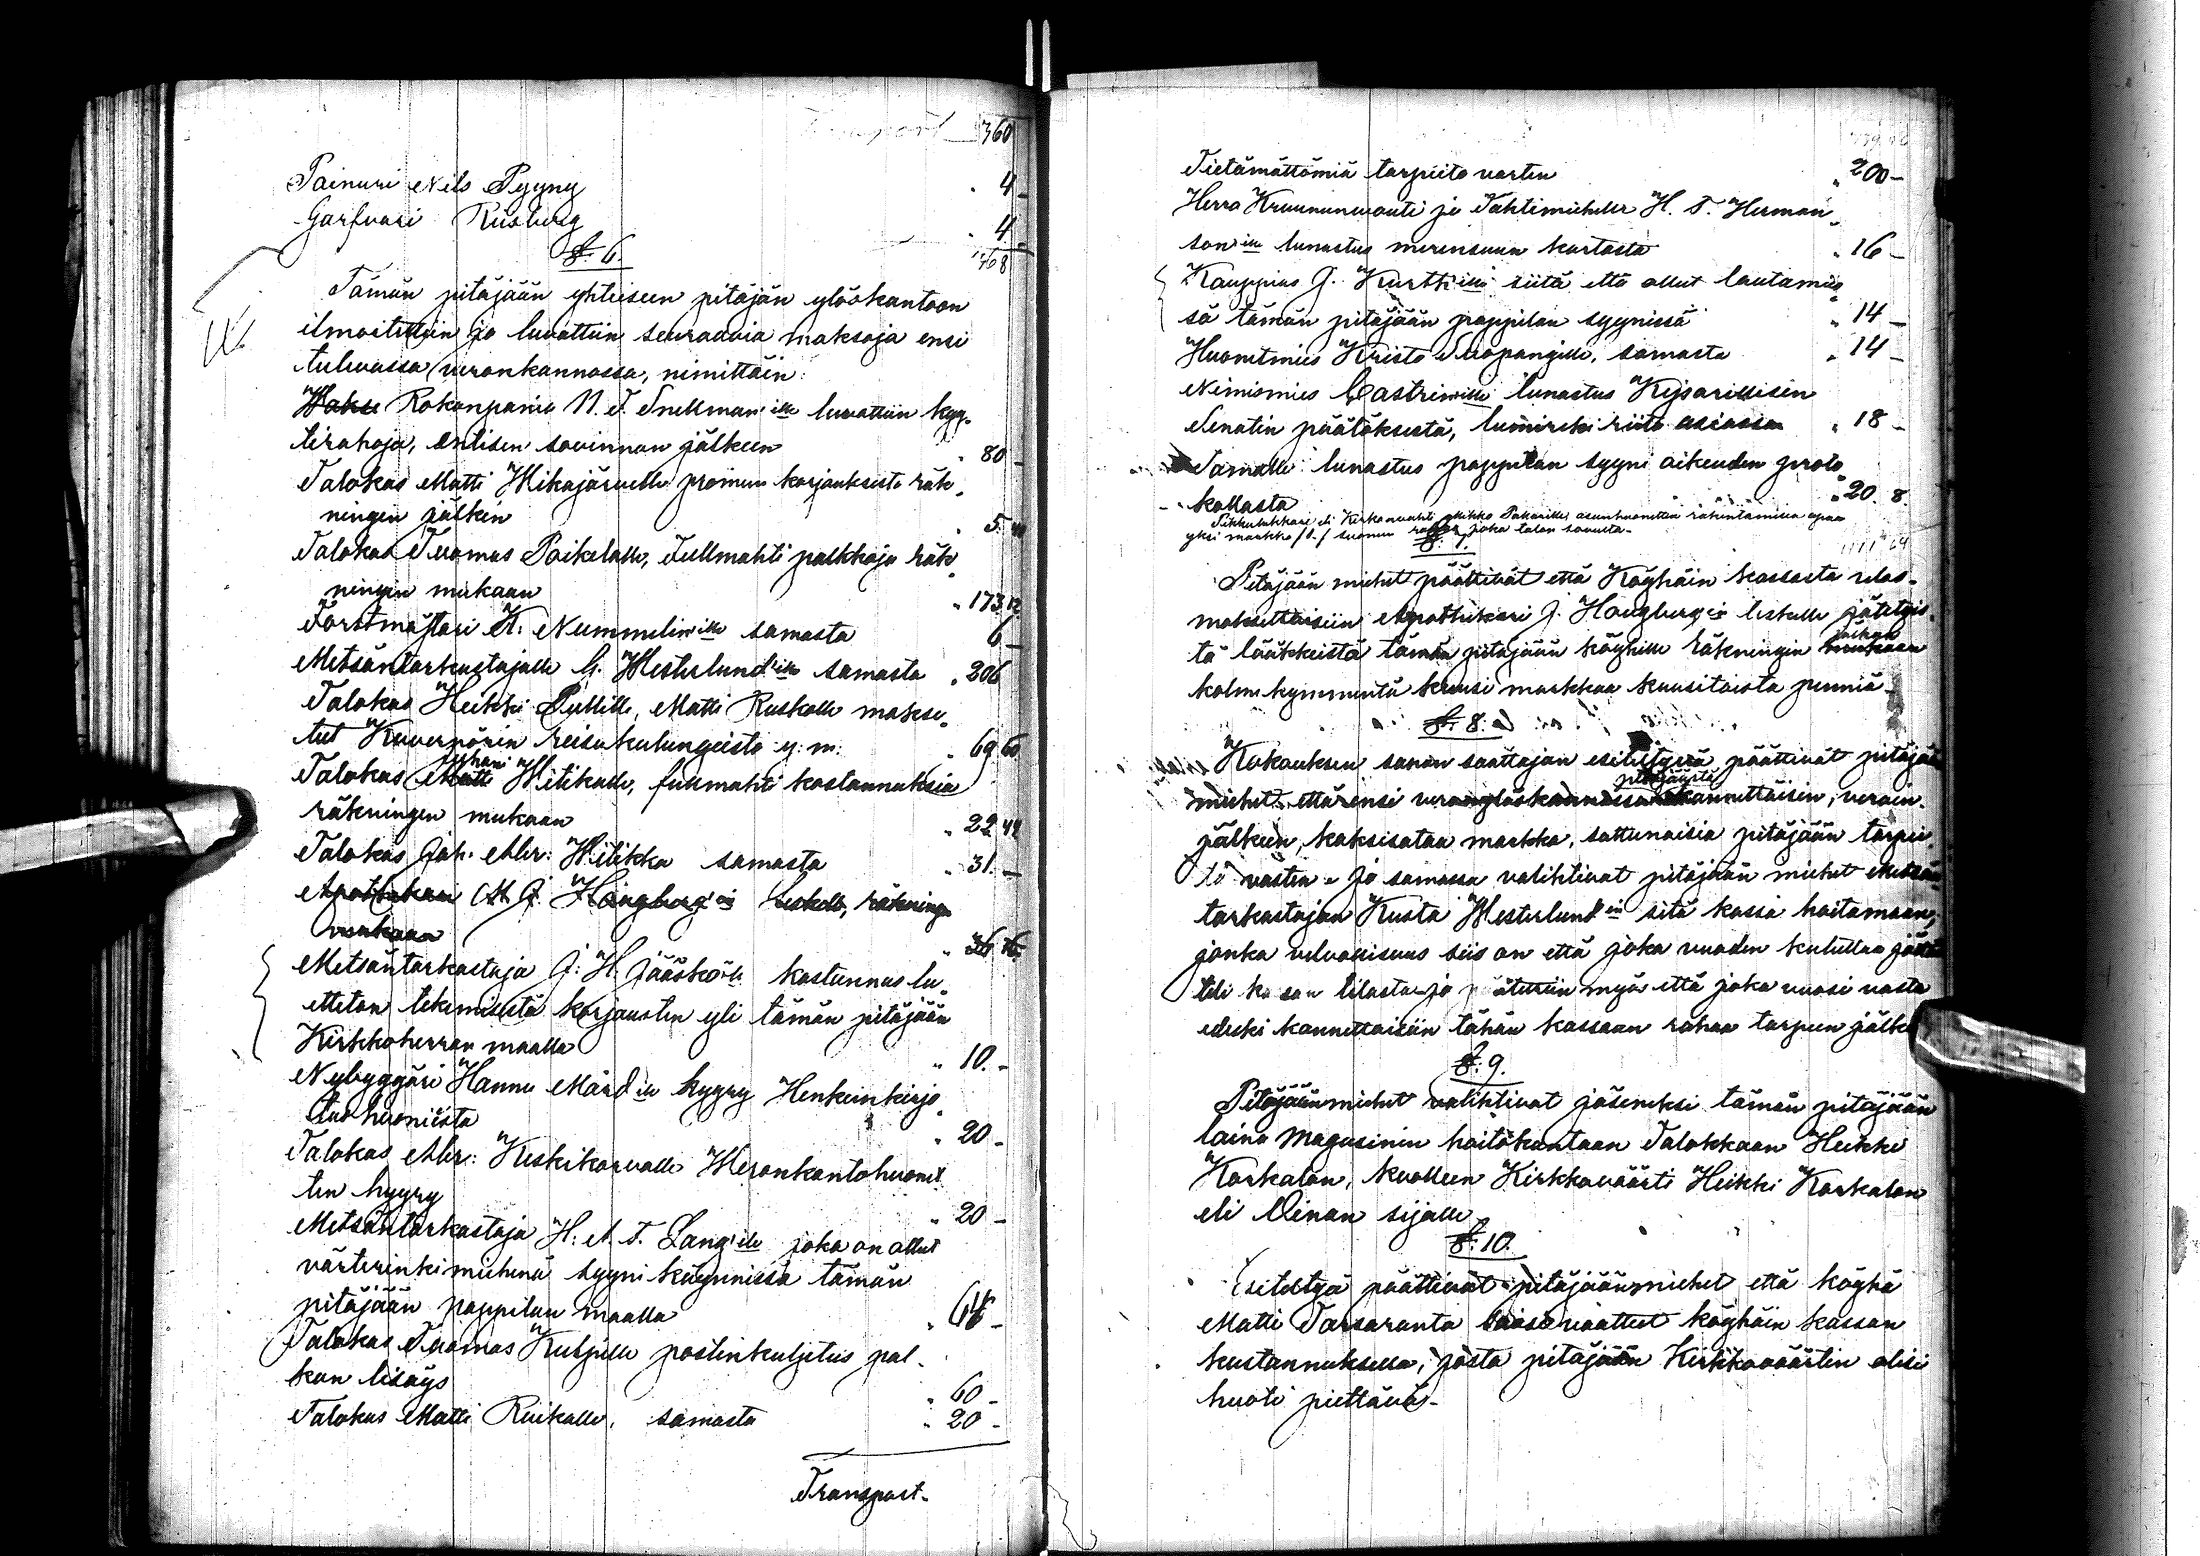 Transport 360
Painuri Nils Pyyny " 4 -
Garfvari Riisberg " 4 -
368
§. 6.
Tämän pitäjään yhteiseen pitäjän ylöskantoon
ilmoitettiin ja luvattiin seuraavia maksoja ensi
tulevassa veronkannossa, nimittäin:
Kokonpania N. J. Snellman'ille luvattiin kyy-
tirahoja, entisen sovinnon jälkeen " 80 -
Talokas Matti Wikajärvelle promun korjauksesta räk-
ningin jälkein " 5. 40
Talokas Tuomas Paikalalle, Fullmahti palkkoja räk-
ningin mukaan " 173.12
Forstmästari K. Nummelin'ille samasta 6 -
Metsäntarkastajalle G. Westerlund'ille samasta " 206
Talokas Heikki Pullille, Matti Ruskolle makse-
tut Kuvernörin reisukulungeista y. m. " 69 60
Talokas Matti Juhani Witikalle, fullmahti kostannuksia
räkningen mukaan " 22 49
Talokas Joh. Abr. Witikka samasta " 31. -
Apothekari J. Haugberg'in Leskelle, räkningin
mukaan " 36 16
Metsäntarkastaja J. H. Jääskö'lle kostannus lu-
ettelon tekemisestä korjausten yli tämän pitäjään
Kirkkoherran maalla " 10. -
Nybyggäri Hannu Mård'ille hyyry Henkeinkirjo-
tus huoniesta " 20 -
Talokas Abr. Keskikorvalle Weronkantohuonet-
ten hyyry " 20 -
Metsäntarkastaja H. A. T. Lang'ille joka on ollut
värterinkimiehenä syyni käynnissä tämän
pitäjään pappilan maalla " 64 -
Talokas Tuomas Kulpille postinkuljetus pal-
kan lisäys " 60 -
Talokas Matti Ruikalle, samasta " 20 -
Transport.
Tietämättömiä tarpeita varten " 200 -
Herra Kruununvouti ja Tahtimieheltä H. T. Herman-
son'ille lunastus merensuun kartasta " 16 -
Kauppias J. Kurtti'lle siitä että ollut lautamies-
sä tämän pitäjään pappilan syynissä " 14 -
Huonetmies Kristo Seipängille, samasta " 14 -
Nimismies Castrin'ille lunastus Keisarillisen
Senatin päätöksestä, riita asiassa " 18 -
Samalle lunastus pappilan syyni oikeuden proto-
kollasta " 20. 8
Pikkulukkari eli Kirkonvahti Mikko Pakarille, asunhuonetten rakentamisen apua
yksi markka /1-/ suomen rahaa joka talon savusta.
§. 7.
Pitäjään miehet päättivät että Köyhäin kassasta ulos-
maksettaisiin Apothekari J. Haugberg'in leskelle jätetyis-
tä lääkkeistä tämän pitäjään köyhille räkningin mukaan jälkeen
kolmekymmentä kuusi markkaa kuusitoista penniä.
§. 8.
Kokouksen sanan saattajan esitettyä päättivät pitäjään
miehet että ensi veronylöskannossa pitäjäästä kannettaisiin, veroin
jälkeen, kaksisataa markka, sattunaisia pitäjään tarpei-
ta varten. Ja samassa valihtivat pitäjään miehet Metsän-
tarkastajan Kusta Westerlund'in sitä kassa hoitamaan,
jonka velvollisuus siis on että joka vuoden kuluttua jättä
tili kassan tilasta, ja päätettiin myös että joka vuosi vasta
edeski kannettaisiin tähän kassaan rahaa tarpeen jälkeen
§. 9.
Pitäjäänmiehet valihtivat jäseneksi tämän pitäjään
laina magasinin hoitokuntaan Talokkaan Heikki
Korkalon, kuolleen Kirkkoväärti Heikki Korkalon
eli Oinan sijalle.
§. 10.
Esitettyä päättivät pitäjäänmiehet että köyhä
Matti Tarsaranta saisi vaatteet köyhäin kassan
kustannuksella, josta pitäjään Kirkkoväärtin olisi
huoli piettävä.